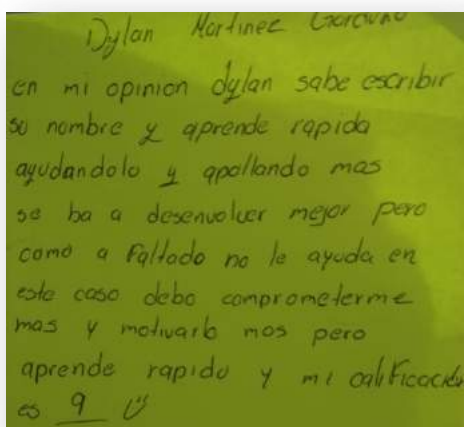 Dylan Martinez
en mi opinion dylan sabe escribir
so nombre y aprende rapida
ayudandolo y apollando mas
se ba a desenvolver mejor pero
como a faltado no le ayuda en
este caso debo comprometerme
mas y motivarlo mas pero
aprende rapido y mi calificación
es 9